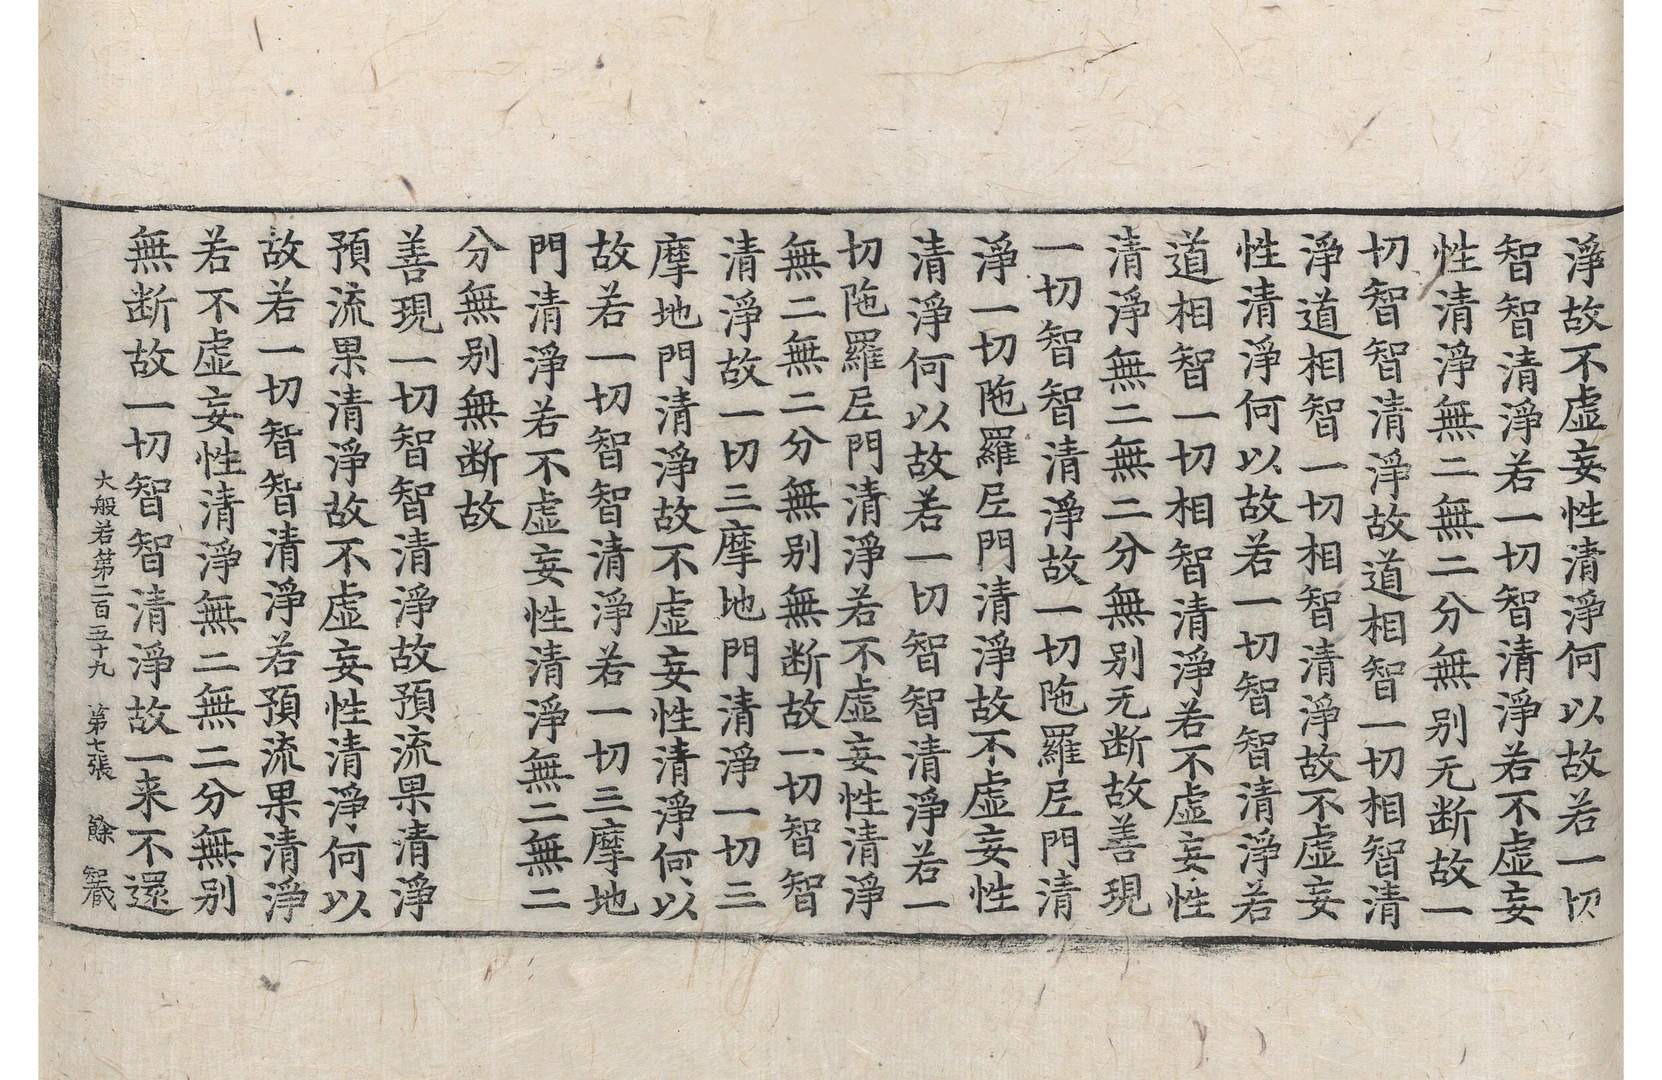 淨故不虛妄性清淨何以故若一切
智智清淨若一切智清淨若不虛妄
性清淨無二無二分無別无断故一
切智智清淨故道相智一切相智清
淨道相智一切相智清淨故不虛妄
性清淨何以故若一切智智清淨若
道相智一切相智清淨若不虛妄性
清淨無二無二分無別无断故善現
一切智智清淨故一切陁羅尼門清
淨一切陁羅尼門清淨故不虛妄性
清淨何以故若一切智智清淨若一
切陁羅尼門清淨若不虛妄性清淨
無二無二分無別無断故一切智智
清淨故一切三摩地門清淨一切三
摩地門清淨故不虛妄性清淨何以
故若一切智智清淨若一切三摩地
門清淨若不虛妄性清淨無二無二
分無別無断故
善現一切智智清淨故預流果清淨
預流果清淨故不虛妄性清淨何以
故若一切智智清淨若預流果清淨
若不虛妄性清淨無二無二分無別
無断故一切智智清淨故一来不還
大般若第二百五十九 第七張 餘